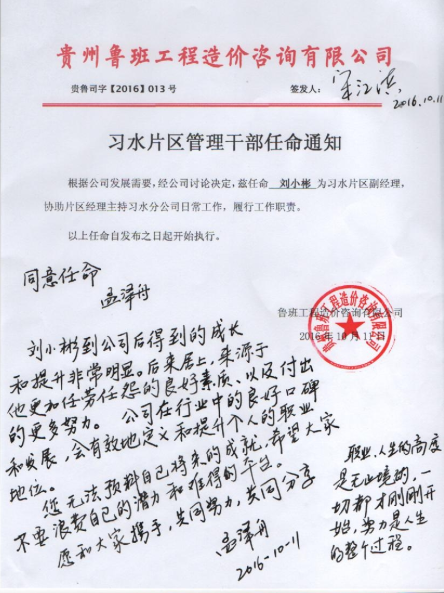 贵州鲁班工程造价咨询有限公司
贵鲁司字【2016】013号
签发人：
2016.10.11
习水片区管理干部任命通知
根据公司发展需要，经公司讨论决定，兹任命 刘小彬 为习水片区副经理，
协助片区经理主持习水分公司日常工作，履行工作职责。
以上任命自发布之日起开始执行。
同意任命
孟泽舟
鲁班工程造价咨询有限公司
2016年10月11日
刘小彬到公司后得到的成长
和提升非常明显。后来居上，来源于
他更加任劳任怨的良好素质、以及付出
的更多努力。公司在行业中的良好口碑
和发展，会有效地定义和提升个人的职业
地位。
您无法预料自己将来的成就，希望大家
不要浪费自己的潜力和难得的平台。
愿和大家携手，共同努力，共同分享
孟泽舟
2016-10-11
职业、人生的高度
是无止境的，一
切都才刚刚开
始，努力是人生
的整个过程。